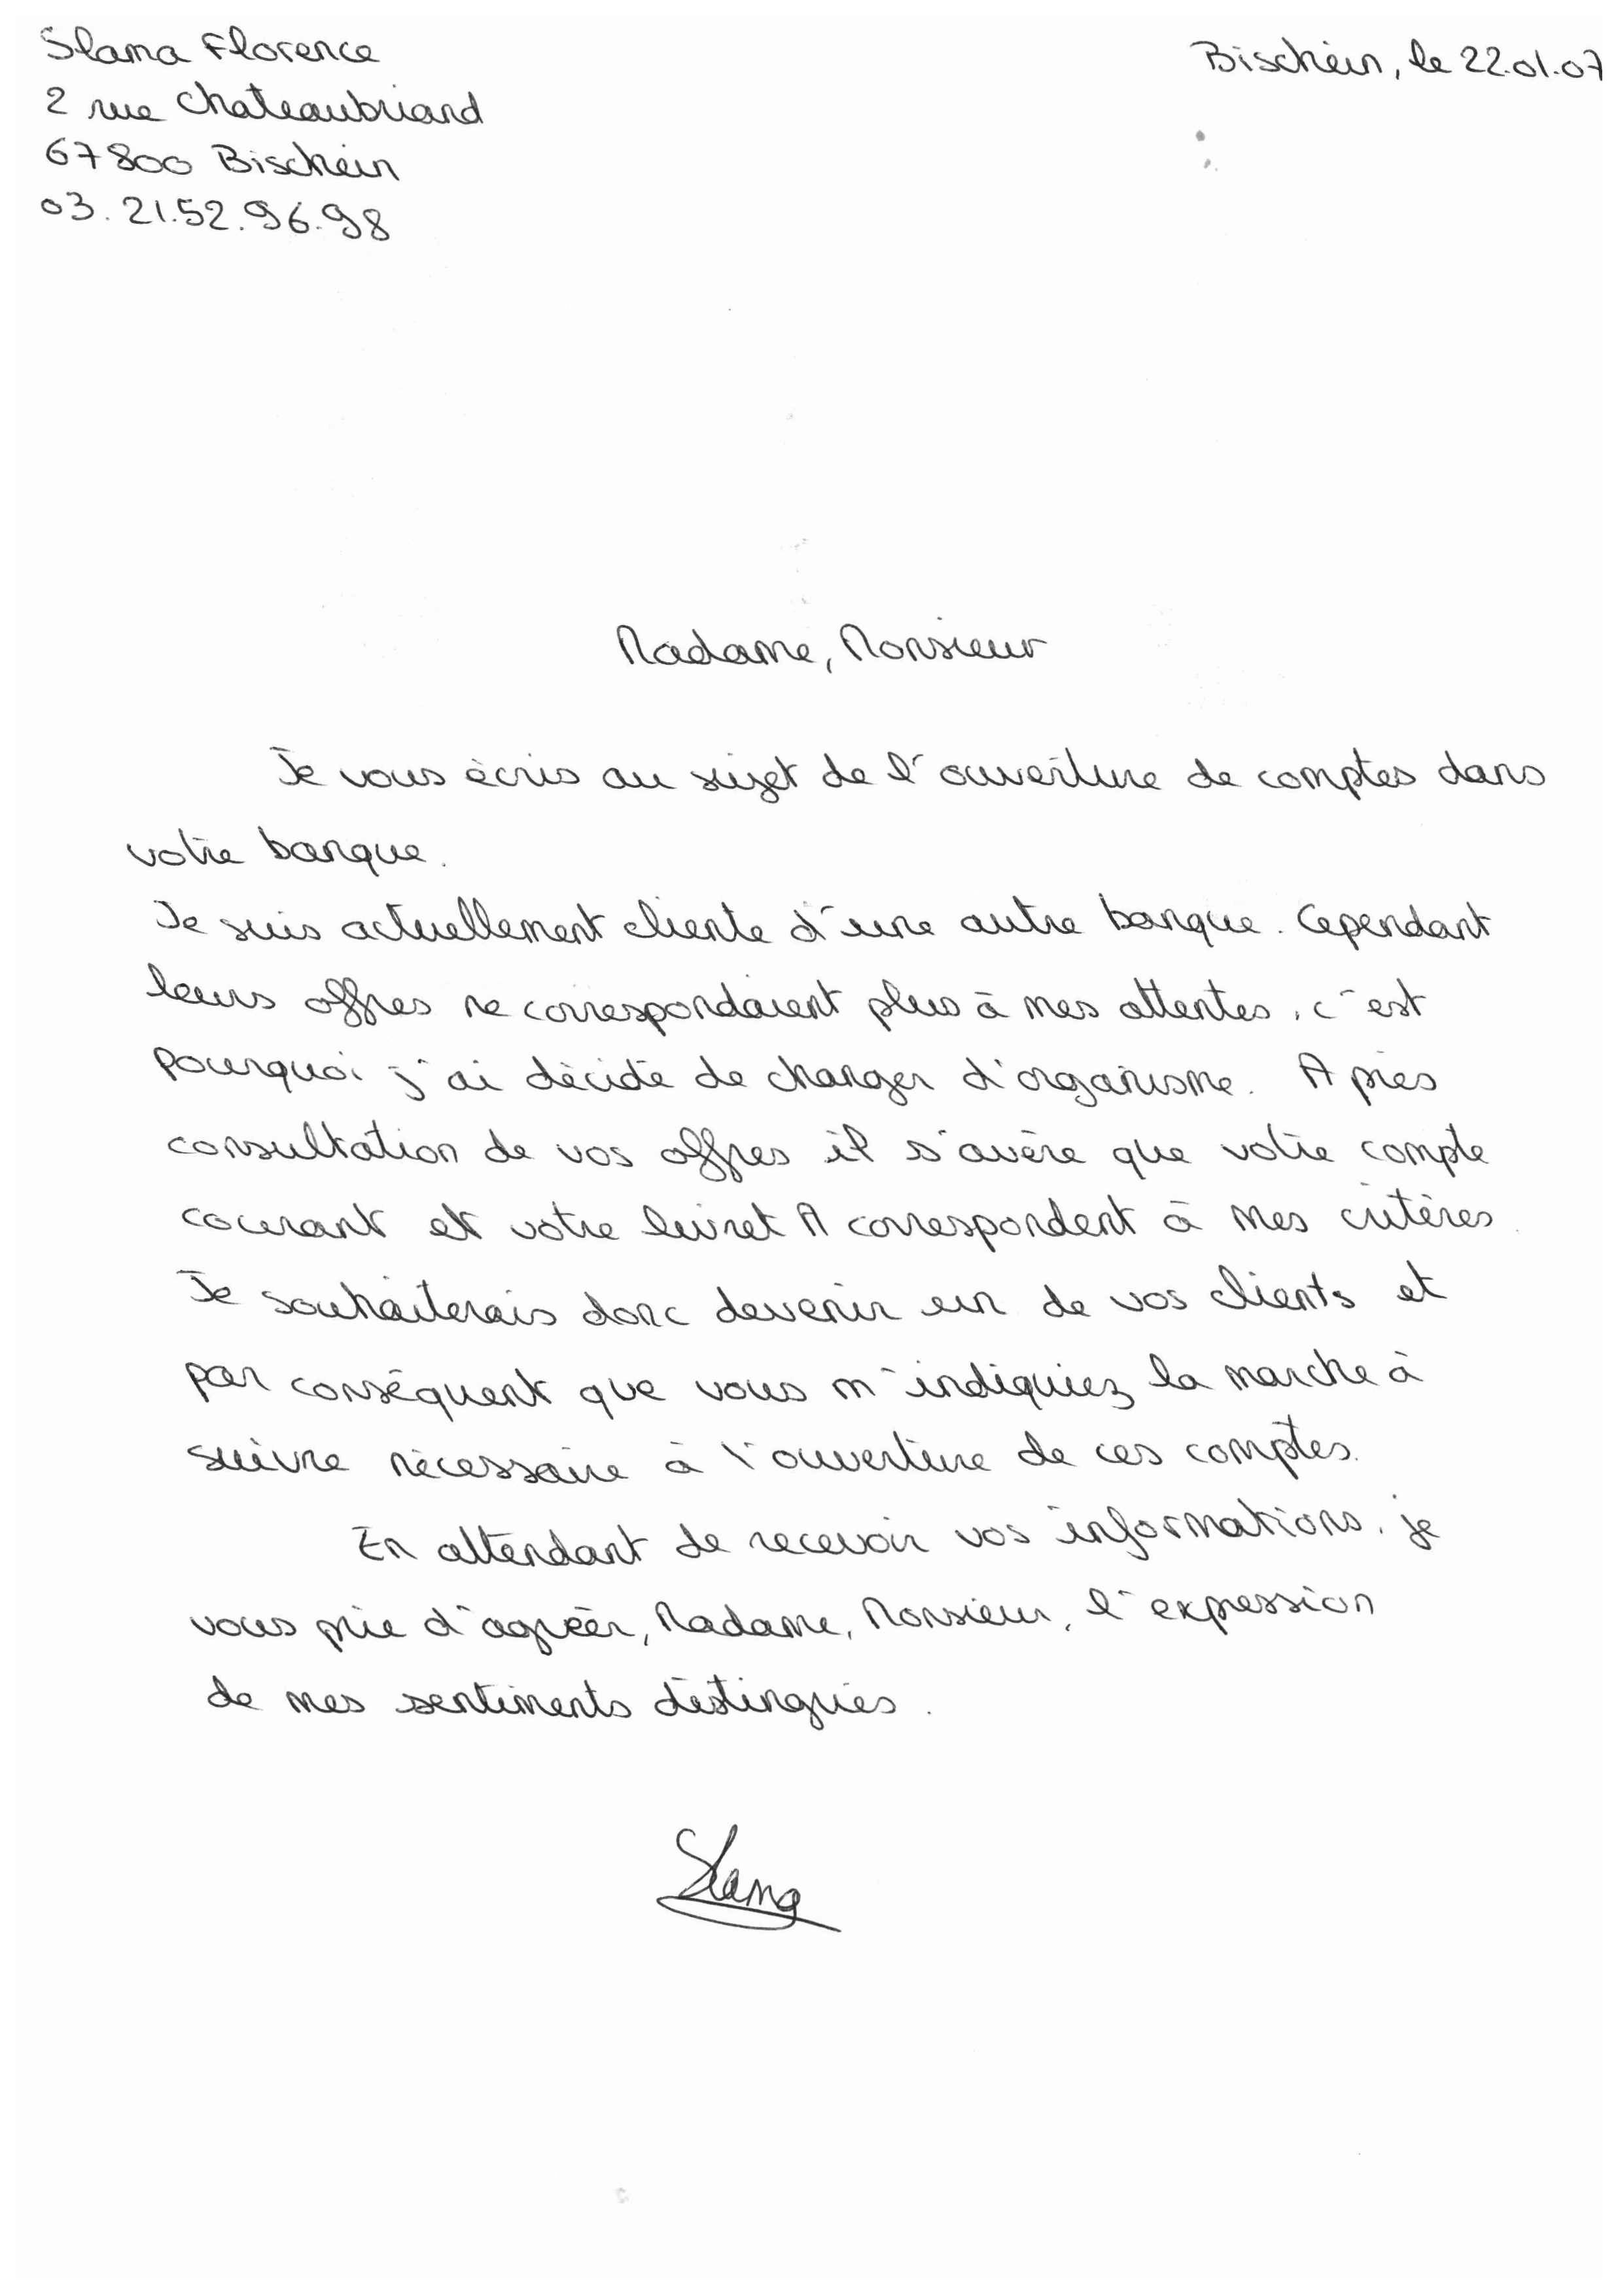 Slama Florence
Bischein, le 22.01.07
2 rue Chateaubriand
67800 Bischein
03.21.52.96.98
Madame, Monsieur
Je vous écris au sujet de l'ouverture de comptes dans
votre banque.
Je suis actuellement cliente d'une autre banque. Cependant
leurs offres ne correspondaient plus à mes attentes, c'est
pourquoi j'ai décidé de changer d'organisme. Après
consultation de vos offres il s'avère que votre compte
courant et votre livret A correspondent à mes critères.
Je souhaiterais donc devenir un de vos clients et
par conséquent que vous m'indiquiez la marche à
suivre nécessaire à l'ouverture de ces comptes.
En attendant de recevoir vos informations, je
vous prie d'agréer, Madame, Monsieur, l'expression
de mes sentiments distingués.
Slama